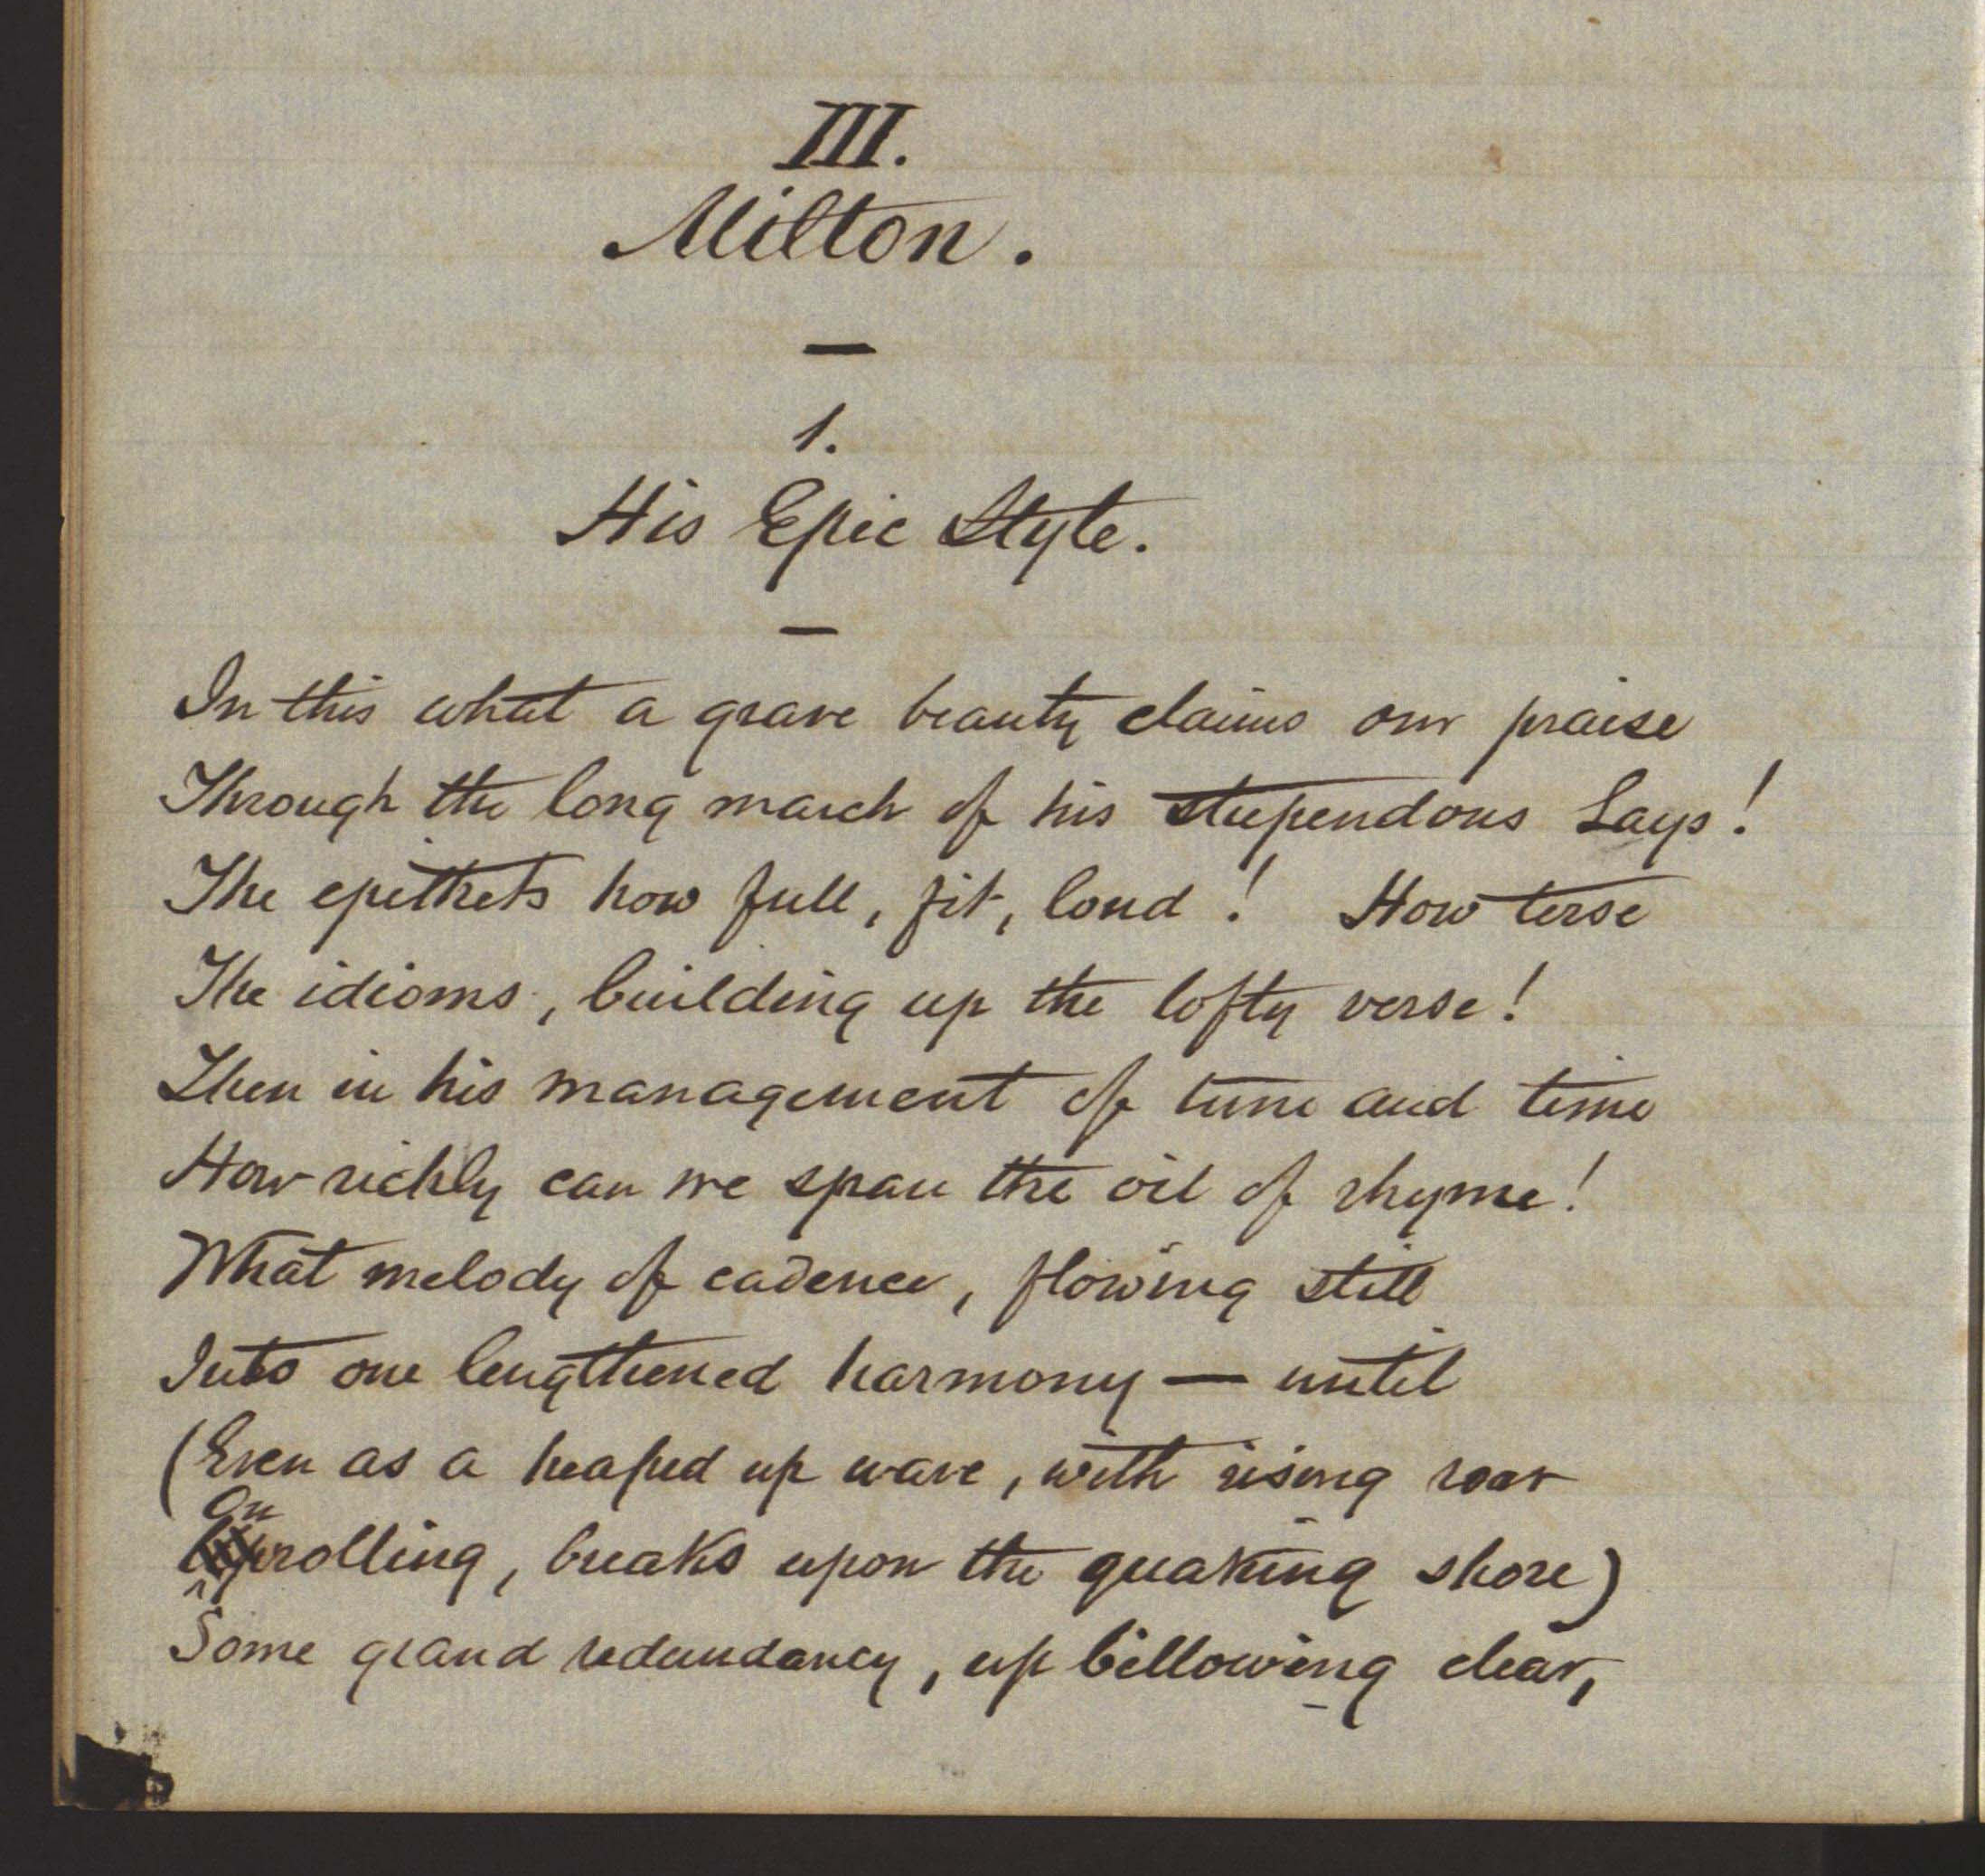 III.
Milton.
—
1.
His Epic Style.
—
In this what a grave beauty claims our praise
Through the long march of his stupendous Lays!
The epithets how full, fit, loud! How terse
The idioms, building up the lofty verse!
Then in his management of tune and time
How richly can we span the oil of rhyme!
What melody of cadence, flowing still
Into one lengthened harmony — until
(Even as a heaped up wave, with rising roar
On rolling, breaks upon the quaking shore)
Some grand redundancy, up billowing clear,